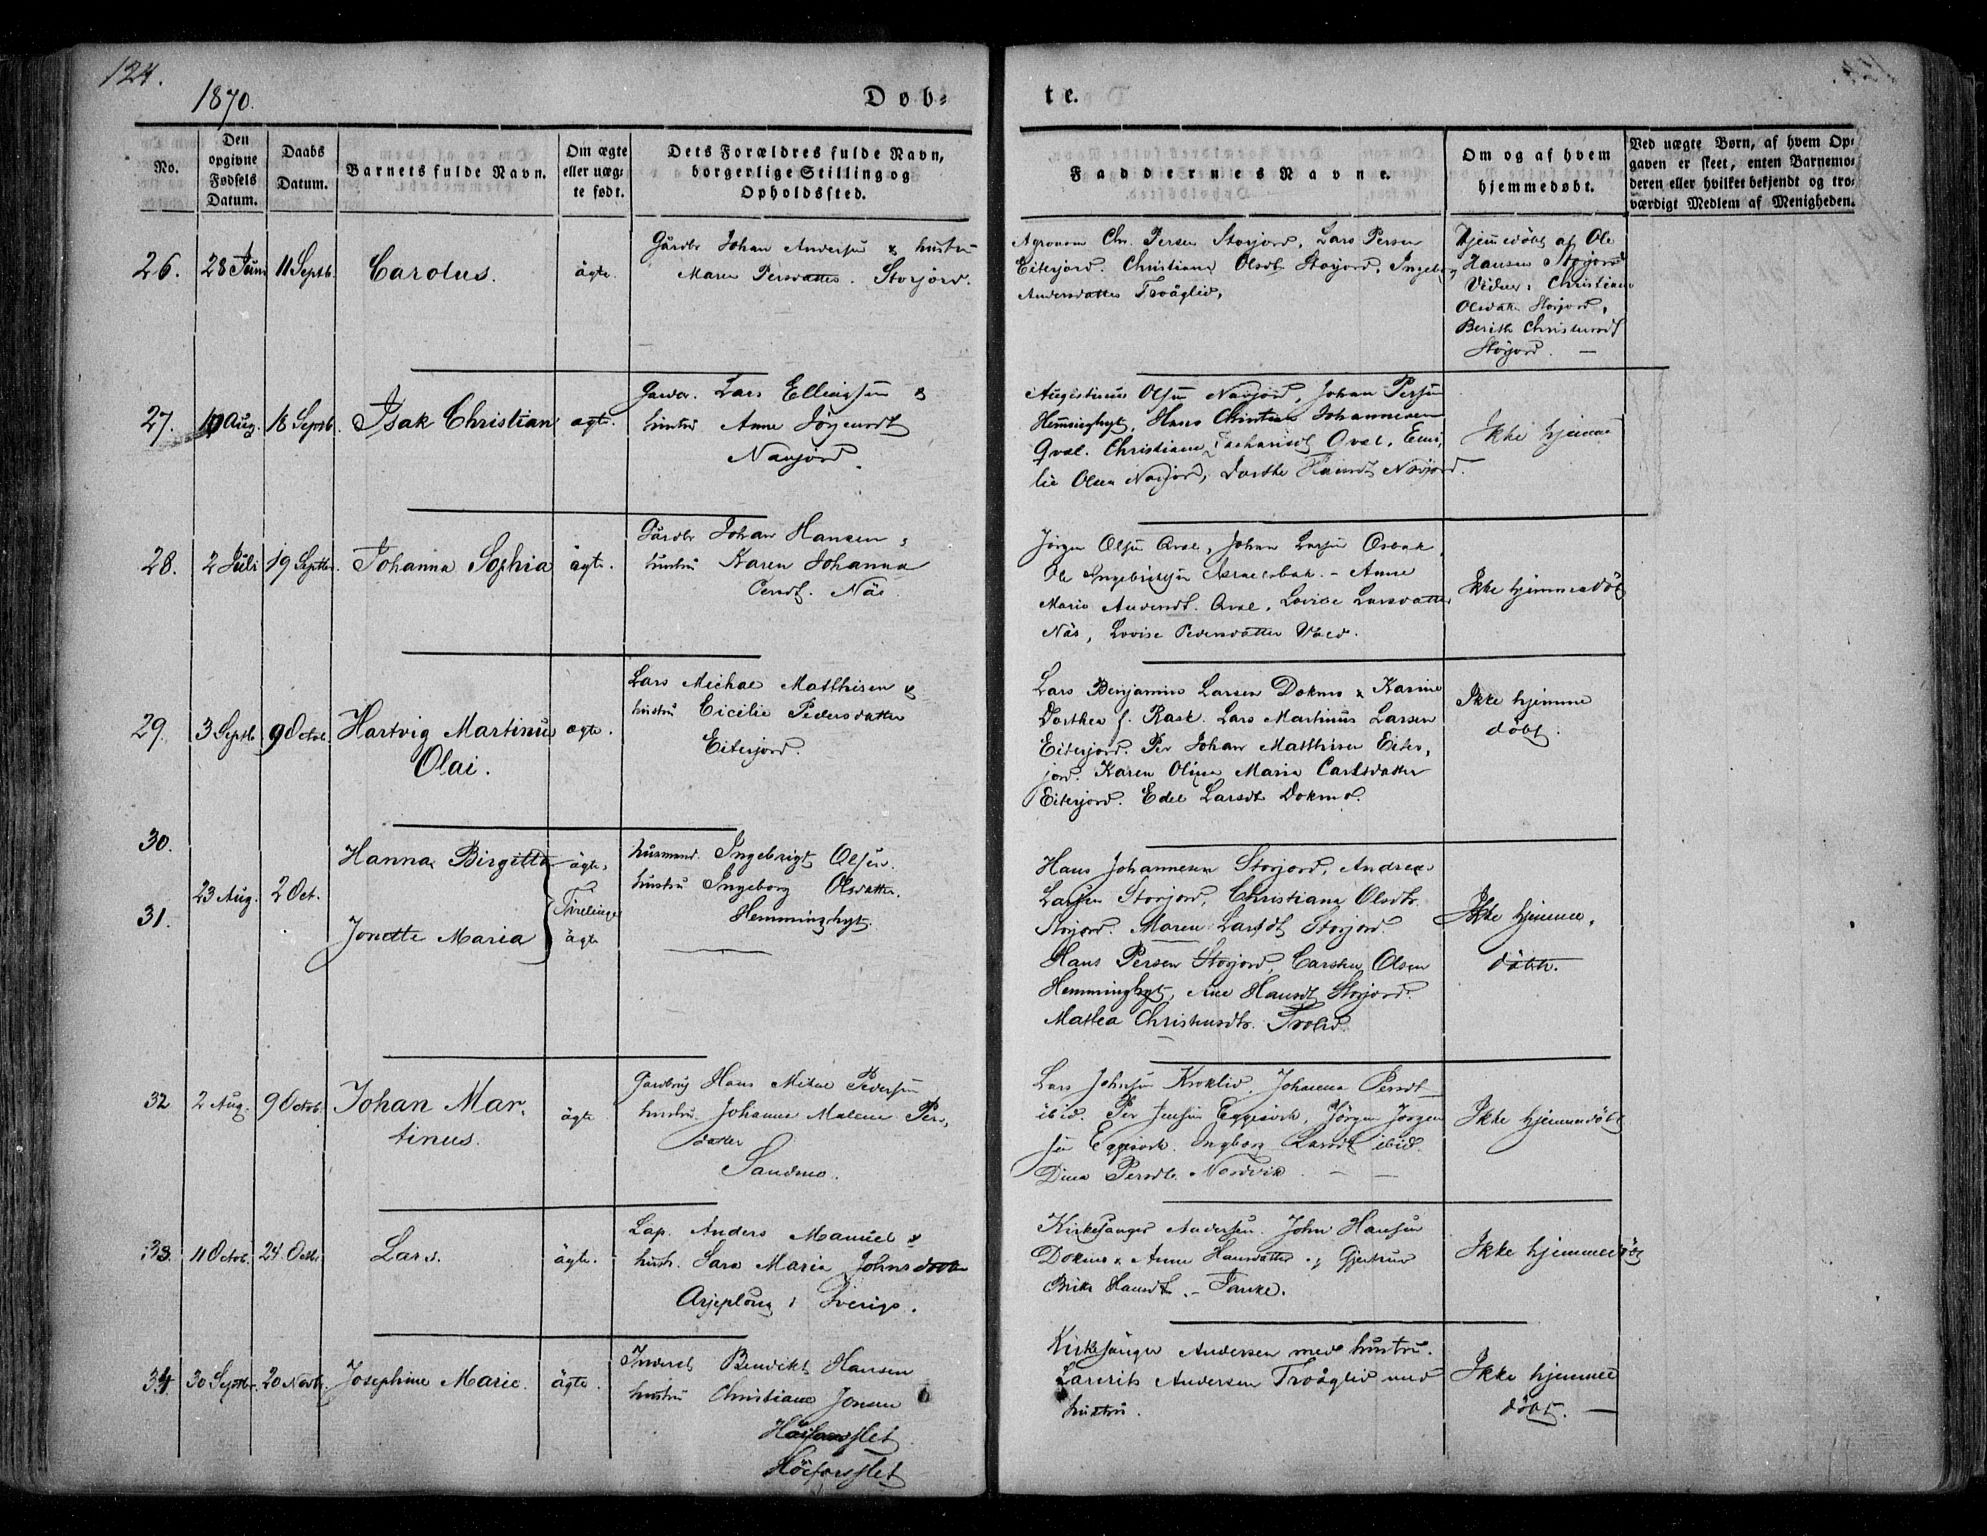 124.
1870.
Døb-
te.
No.
Den opgivne Fødsels Datum.
Daabs Datum.
Barnets fulde Navn.
Om ægte eller uægte født.
Dets Forældres fulde Navn, borgerlige Stilling og Opholdssted.
Faddernes Navne.
Om og af hvem hjemmedøbt.
Ved uægte Børn, af hvem Op-
gaven er skeet, enten Barnemo-
deren eller hvilket bekjendt og tro-
værdigt Medlem af Menigheden.
26. 28 Juni 11 Septb. Carolus. ägte.
Gårdbr Johan Andersen & hustru
Maren Persdatter. Storjord.
Agronom Chr. Persen Storjord, Lars Persen
Eiterjord. Christiane Olsdt Storjord, Ingeborg
Andersdatter Troåglid.
Hjemmedöbt af Ole
Hansen Storjord
Vidner: Christiane
Olsdatr Storjord,
Berith
Storjord. —
27. 10 Aug. 18 Septb. Isak Christian ägte.
Gardbr. Lars Ellingsen &
hustru Anne Jörgensdt
Navjord.
Augustinus Olsen Navjord, Johan Persen
Hemminghyt, Hans Christian Johannesen
Qval. Christiane Zachariasdt Qval, Emi-
lie Olsen Navjord, Dorthe Hansdt Navjord.
Ikke hjemme
28. 2 Juli 19 Septbr. Johanna Sophia ägte.
Gårdbr Johan Hansen,
hustru Karen Johanna
Näs.
Jörgen Olsen Qval, Johan Larsen Osbak,
Ole Ingebrigtsen - Anne
Marie Qval, Lovise Larsdatter
Näs, Lovise Pedersdatter Vold.
Ikke hjemmedöbt
29. 3 Septb. 9 Octob. Hartvig Martinus ægte.
Olai.
Lars Michal Matthisen &
hustru Cicilie Pedersdatter
Eiterjord.
Lars Benjamin Larsen Dokmo & Karine
Dorthea f. Rask. Lars Martinus Larsen
Eiterjord. Per Johan Matthisen Eiter-
jord. Karen Olina Maria Carlsdatter
Eiterjord. Edel Larsdt Dokmo.
Ikke hjemme
döbt.
30. Hanna Birgitta ägte.
23 Aug. 2 Oct. Tvillinge
31. Jonette Maria ägte
husmand. Ingebrigt Olsen.
hustru Ingeborg Olsdatter.
Hemminghyt.
Hans Johannesen Storjord, Andreas
Larsen Storjord, Christiana Olsdtr.
Storjord. Maren Larsdt Storjord.
Hans Persen Storjord, Carsten Olsen
Hemminghyt, Ane Hansdt Storjord.
Mathea Christensdtr. Trolid.
Ikke hjemme-
döbte.
32 2 Aug. 9 Octob. Johan Mar-
tinus. ägte
Gardbrug Hans Mikal Pedersen
hustru Johanna Malene Per-
datter
Sandmo.
Lars Johnsen Kroklid. Johanna Persdt
ibid. Per Jensen Eggesvik, Jörgen Jörgen-
sen Eggesvik. Ingborg Larsdt ibid.
Dina Persdtr Nordvik — —
Ikke hjemmedöbt
33. 11 Octob. 24. Octbr Lars. ägte.
Lap. Anders Manuel &
hustr. Sara Maria Johnsdatter
Arjeploug i Sverige.
Kirkesanger Andersen. John Hansen
Dokmo & Anne Hansdatter Gjertrud
Hansdt. — Tanke.
Ikke hjemmedöbt
34. 30 Septbr. 20 Novbr Josephine Marie. ägte.
Inderst Bendikt Hansen
hustru Christiane Jonsen
Höiforsslet
Kirkesanger Andersen med hustru.
Laurits Andersen Troåglid med
hustru.
Ikke hjemme
döbt. —